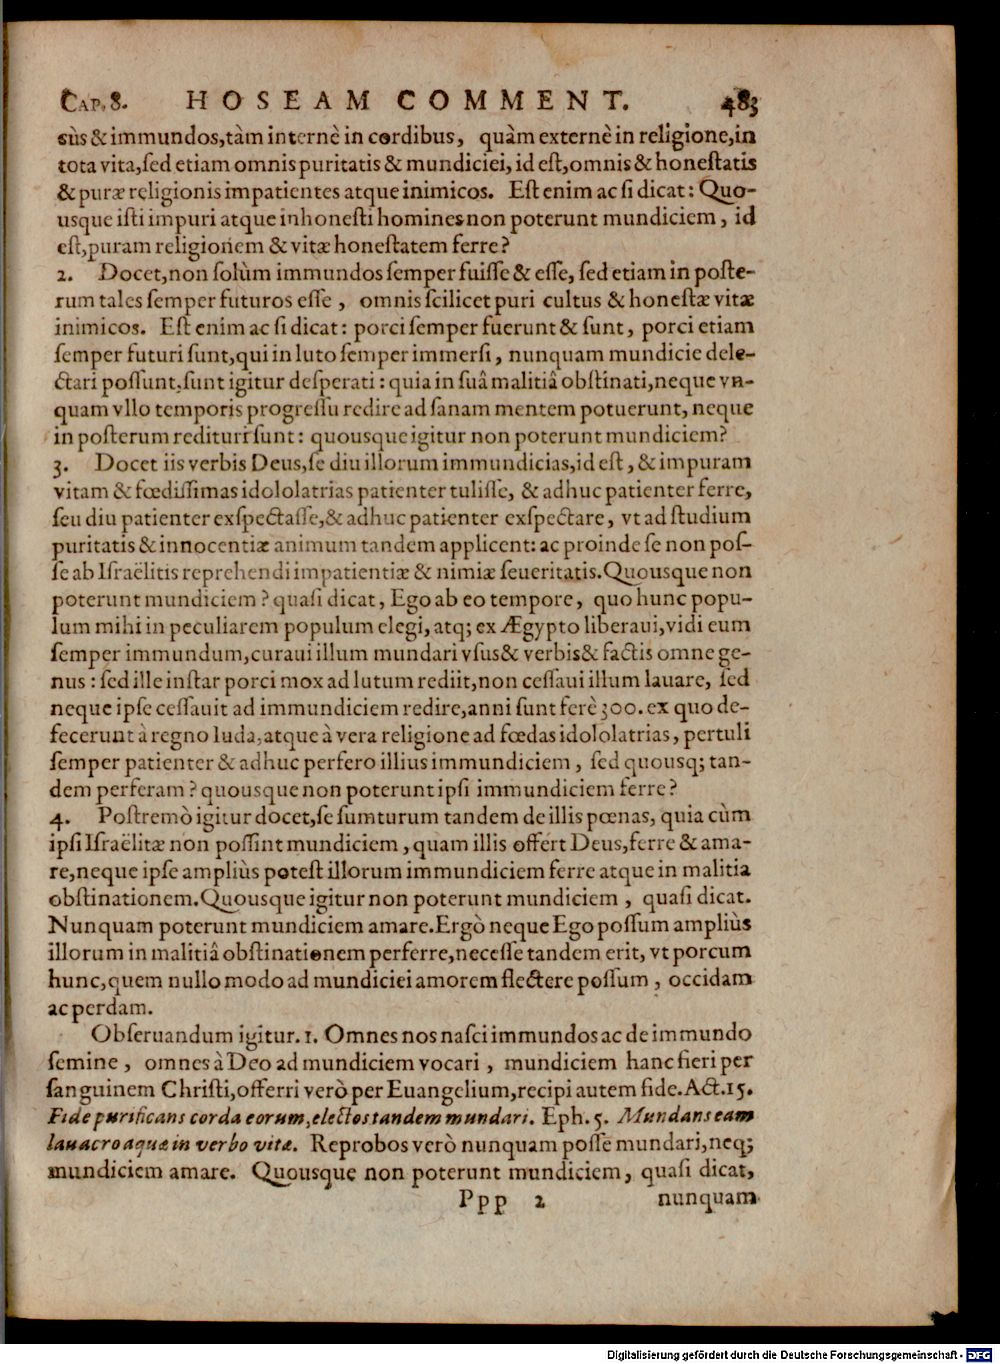 CAP. 8. HOSEAM COMMENT. 483
sùs & immundos, tàm internè in cordibus, quàm externè in religione, in
tota vita, ſed etiam omnis puritatis & mundiciei, id eſt, omnis & honeſtatis
& puræ religionis impatientes atque inimicos. Eſt enim ac ſi dicat: Quo-
usque iſti impuri atque inhoneſti homines non poterunt mundiciem, id
eſt, puram religionem & vitæ honeſtatem ferre?
2. Docet, non ſolùm immundos ſemper fuiſſe & eſſe, ſed etiam in poſte-
rum tales ſemper futuros eſſe, omnis ſcilicet puri cultus & honeſtæ vitæ
inimicos. Eſt enim ac ſi dicat: porci ſemper fuerunt & ſunt, porci etiam
ſemper futuri ſunt, qui in luto ſemper immerſi, nunquam mundicie dele-
ctari poſſunt, ſunt igitur deſperati: quia in ſuâ malitiâ obſtinati, neque vn-
quam vllo temporis progreſſu redire ad ſanam mentem potuerunt, neque
in poſterum redituri ſunt: quousque igitur non poterunt mundiciem?
3. Docet iis verbis Deus, ſe diu illorum immundicias, id eſt, & impuram
vitam & fœdiſſimas idololatrias patienter tuliſſe, & adhuc patienter ferre,
ſeu diu patienter exſpectaſſe, & adhuc patienter exſpectare, vt ad ſtudium
puritatis & innocentiæ animum tandem applicent: ac proinde ſe non poſ-
ſe ab Iſraëlitis reprehendi impatientiæ & nimiæ ſeueritatis. Quousque non
poterunt mundiciem? quaſi dicat, Ego ab eo tempore, quo hunc popu-
lum mihi in peculiarem populum elegi, atq; ex Ægypto liberaui, vidi eum
ſemper immundum, curaui illum mundari vſus & verbis & factis omne ge-
nus: ſed ille inſtar porci mox ad lutum rediit, non ceſſaui illum lauare, ſed
neque ipſe ceſſauit ad immundiciem redire, anni ſunt ferè 300. ex quo de-
fecerunt à regno Iuda, atque à vera religione ad fœdas idololatrias, pertuli
ſemper patienter & adhuc perfero illius immundiciem, ſed quousq; tan-
dem perferam? quousque non poterunt ipſi immundiciem ferre?
4. Poſtremò igitur docet, ſe ſumturum tandem de illis pœnas, quia cùm
ipſi Iſraëlitæ non poſſint mundiciem, quam illis offert Deus, ferre & ama-
re, neque ipſe ampliùs poteſt illorum immundiciem ferre atque in malitia
obſtinationem. Quousque igitur non poterunt mundiciem, quaſi dicat.
Nunquam poterunt mundiciem amare. Ergò neque Ego poſſum ampliùs
illorum in malitiâ obſtinationem perferre, neceſſe tandem erit, vt porcum
hunc, quem nullo modo ad mundiciei amorem flectere poſſum, occidam
ac perdam.
Obſeruandum igitur. 1. Omnes nos naſci immundos ac de immundo
ſemine, omnes à Deo ad mundiciem vocari, mundiciem hanc fieri per
ſanguinem Chriſti, offerri verò per Euangelium, recipi autem fide. Act. 15.
Fide purificans corda eorum, electos tandem mundari. Eph. 5. Mundans eam
lauacro aquæ in verbo vitæ. Reprobos verò nunquam poſſe mundari, neq;
mundiciem amare. Quousque non poterunt mundiciem, quaſi dicat,
Ppp 2 nunquam
Digitalisierung gefördert durch die Deutsche Forschungsgemeinschaft - DFG